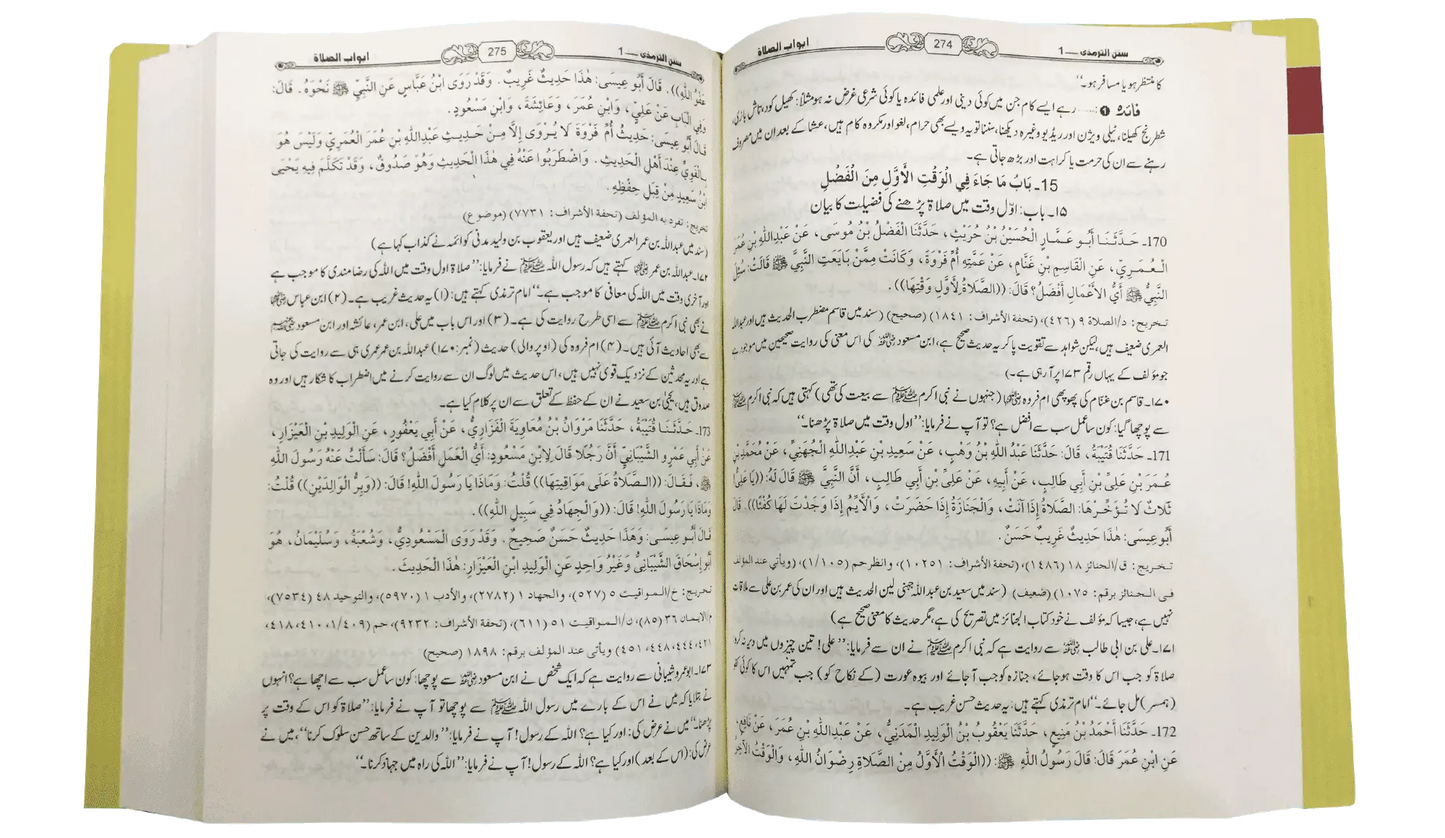 سنن الترمذی ــــ 1
274
ابواب الصلاة
کا منتظر ہو یا مسافر ہو۔“
فائدہ ❶ :..... رہے ایسے کام جن میں کوئی دینی اور علمی فائدہ یا کوئی شرعی غرض نہ ہو مثلاً: کھیل کود، تاش بازی،
شطرنج کھیلنا، ٹیلی ویژن اور ریڈیو وغیرہ دیکھنا، سننا تو یہ ویسے بھی حرام، لغو اور مکروہ کام ہیں، عشا کے بعد ان میں مصروف
رہنے سے ان کی حرمت یا کراہت اور بڑھ جاتی ہے۔
15۔ بَابُ مَا جَاءَ فِي الْوَقْتِ الْأَوَّلِ مِنَ الْفَضْلِ
۱۵۔ باب: اوّل وقت میں صلاۃ پڑھنے کی فضیلت کا بیان
170۔ حَدَّثَنَا أَبُو عَمَّارٍ الْحُسَيْنُ بْنُ حُرَيْثٍ، حَدَّثَنَا الْفَضْلُ بْنُ مُوسَى، عَنْ عَبْدِاللَّهِ بْنِ عُمَرَ
الْعُمَرِيِّ، عَنِ الْقَاسِمِ بْنِ غَنَّامٍ، عَنْ عَمَّتِهِ أُمِّ فَرْوَةَ، وَكَانَتْ مِمَّنْ بَايَعَتِ النَّبِيَّ ﷺ قَالَتْ: سُئِلَ
النَّبِيُّ ﷺ أَيُّ الأَعْمَالِ أَفْضَلُ؟ قَالَ: ((الصَّلَاةُ لِأَوَّلِ وَقْتِهَا)) .
تخريج: د/الصلاة ٩ (٤٢٦)، (تحفة الأشراف: ١٨٤١) (صحيح) (سند میں قاسم مضطرب الحدیث ہیں اور عبداللہ
العمری ضعیف ہیں، لیکن شواہد سے تقویت پا کر یہ حدیث صحیح ہے، ابن مسعود ؓ کی اس معنی کی روایت صحیحین میں موجود ہے
جو مؤلف کے یہاں رقم ۱۷۳ پر آ رہی ہے۔)
۱۷۰۔ قاسم بن غنام کی پھوپھی ام فروہ ؓ (جنہوں نے نبی اکرم ﷺ سے بیعت کی تھی) کہتی ہیں کہ نبی اکرم ﷺ
سے پوچھا گیا: کون سا عمل سب سے افضل ہے؟ تو آپ نے فرمایا: ”اول وقت میں صلاۃ پڑھنا۔“
171۔ حَدَّثَنَا قُتَيْبَةُ، قَالَ: حَدَّثَنَا عَبْدُ اللَّهِ بْنُ وَهْبٍ، عَنْ سَعِيدِ بْنِ عَبْدِاللَّهِ الْجُهَنِيِّ، عَنْ مُحَمَّدِ بْنِ
عُمَرَ بْنِ عَلِيِّ بْنِ أَبِي طَالِبٍ، عَنْ أَبِيهِ، عَنْ عَلِيِّ بْنِ أَبِي طَالِبٍ، أَنَّ النَّبِيَّ ﷺ قَالَ لَهُ: ((يَا عَلِيُّ!
ثَلَاثٌ لَا تُؤَخِّرْهَا: الصَّلَاةُ إِذَا آنَتْ، وَالْجَنَازَةُ إِذَا حَضَرَتْ، وَالْأَيِّمُ إِذَا وَجَدْتَ لَهَا كُفْئًا)). قَالَ
أَبُو عِيسَى: هَذَا حَدِيثٌ غَرِيبٌ حَسَنٌ .
تخريج: ق/الجنائز ١٨ (١٤٨٦)، (تحفة الأشراف: ١٠٢٥١)، وانظر حم (١/١٠٥)، (ويأتي عند المؤلف
في الجنائز برقم: ١٠٧٥) (ضعيف) (سند میں سعید بن عبداللہ جہنی لین الحدیث ہیں اور ان کی عمر بن علی سے ملاقات
نہیں ہے، جیسا کہ مؤلف نے خود کتاب الجنائز میں تصریح کی ہے، مگر حدیث کا معنی صحیح ہے)
۱۷۱۔ علی بن ابی طالب ؓ سے روایت ہے کہ نبی اکرم ﷺ نے ان سے فرمایا: ”علی! تین چیزوں میں دیر نہ کرو:
صلاۃ کو جب اس کا وقت ہو جائے، جنازہ کو جب آ جائے اور بیوہ عورت (کے نکاح کو) جب تمہیں اس کا کوئی کفو
(ہمسر) مل جائے۔“ امام ترمذی کہتے ہیں: یہ حدیث حسن غریب ہے۔
172۔ حَدَّثَنَا أَحْمَدُ بْنُ مَنِيعٍ، حَدَّثَنَا يَعْقُوبُ بْنُ الْوَلِيدِ الْمَدَنِيُّ، عَنْ عَبْدِاللَّهِ بْنِ عُمَرَ، عَنْ نَافِعٍ،
عَنِ ابْنِ عُمَرَ قَالَ: قَالَ رَسُولُ اللَّهِ ﷺ: ((الْوَقْتُ الْأَوَّلُ مِنَ الصَّلَاةِ رِضْوَانُ اللَّهِ، وَالْوَقْتُ الْآخِرُ
سنن الترمذی ــــ 1
275
ابواب الصلاة
عَفْوُ اللَّهِ)). قَالَ أَبُو عِيسَى: هَذَا حَدِيثٌ غَرِيبٌ . وَقَدْ رَوَى ابْنُ عَبَّاسٍ عَنِ النَّبِيِّ ﷺ نَحْوَهُ . قَالَ:
وَفِي الْبَابِ عَنْ عَلِيٍّ، وَابْنِ عُمَرَ، وَعَائِشَةَ، وَابْنِ مَسْعُودٍ.
قَالَ أَبُو عِيسَى: حَدِيثُ أُمِّ فَرْوَةَ لَا يُرْوَى إِلَّا مِنْ حَدِيثِ عَبْدِاللَّهِ بْنِ عُمَرَ الْعُمَرِيِّ وَلَيْسَ هُوَ
بِالْقَوِيِّ عِنْدَ أَهْلِ الْحَدِيثِ . وَاضْطَرَبُوا عَنْهُ فِي هَذَا الْحَدِيثِ وَهُوَ صَدُوقٌ، وَقَدْ تَكَلَّمَ فِيهِ يَحْيَى
بْنُ سَعِيدٍ مِنْ قِبَلِ حِفْظِهِ .
تخريج: تفرد به المؤلف (تحفة الأشراف: ٧٧٣١) (موضوع)
(سند میں عبداللہ بن عمر العمری ضعیف ہیں اور یعقوب بن ولید مدنی کو ائمہ نے کذاب کہا ہے)
۱۷۲۔ عبداللہ بن عمر ؓ کہتے ہیں کہ رسول اللہ ﷺ نے فرمایا: ”صلاۃ اول وقت میں اللہ کی رضا مندی کا موجب ہے
اور آخری وقت میں اللہ کی معافی کا موجب ہے۔“ امام ترمذی کہتے ہیں: (۱) یہ حدیث غریب ہے۔ (۲) ابن عباس ؓ
نے بھی نبی اکرم ﷺ سے اسی طرح روایت کی ہے۔ (۳) اور اس باب میں علی، ابن عمر، عائشہ اور ابن مسعود ؓ
سے بھی احادیث آئی ہیں۔ (۴) ام فروہ کی (اوپر والی) حدیث (نمبر: ۱۷۰) عبداللہ بن عمر عمری ہی سے روایت کی جاتی
ہے اور یہ محدثین کے نزدیک قوی نہیں ہیں، اس حدیث میں لوگ ان سے روایت کرنے میں اضطراب کا شکار ہیں اور وہ
صدوق ہیں، یحییٰ بن سعید نے ان کے حفظ کے تعلق سے ان پر کلام کیا ہے۔
173۔ حَدَّثَنَا قُتَيْبَةُ، حَدَّثَنَا مَرْوَانُ بْنُ مُعَاوِيَةَ الْفَزَارِيُّ، عَنْ أَبِي يَعْفُورٍ، عَنِ الْوَلِيدِ بْنِ الْعَيْزَارِ،
عَنْ أَبِي عَمْرٍو الشَّيْبَانِيِّ أَنَّ رَجُلًا قَالَ لِابْنِ مَسْعُودٍ: أَيُّ الْعَمَلِ أَفْضَلُ؟ قَالَ: سَأَلْتُ عَنْهُ رَسُولَ اللَّهِ
ﷺ، فَقَالَ: ((الصَّلَاةُ عَلَى مَوَاقِيتِهَا)) قُلْتُ: وَمَاذَا يَا رَسُولَ اللَّهِ! قَالَ: ((وَبِرُّ الْوَالِدَيْنِ)) قُلْتُ:
وَمَاذَا يَا رَسُولَ اللَّهِ! قَالَ: ((وَالْجِهَادُ فِي سَبِيلِ اللَّهِ)).
قَالَ أَبُو عِيسَى: وَهَذَا حَدِيثٌ حَسَنٌ صَحِيحٌ . وَقَدْ رَوَى الْمَسْعُودِيُّ، وَشُعْبَةُ، وَسُلَيْمَانُ، هُوَ
أَبُو إِسْحَاقَ الشَّيْبَانِيُّ وَغَيْرُ وَاحِدٍ عَنِ الْوَلِيدِ ابْنِ الْعَيْزَارِ: هَذَا الْحَدِيثَ .
تخريج: خ/المواقيت ٥ (٥٢٧)، والجهاد ١ (٢٧٨٢)، والأدب ١ (٥٩٧٠)، والتوحيد ٤٨ (٧٥٣٤)،
م/الإيمان ٣٦ (٨٥)، ن/المواقيت ٥١ (٦١١)، (تحفة الأشراف: ٩٢٣٢)، حم (١/٤٠٩، ٤١٠، ٤١٨،
٤٢١، ٤٤٤، ٤٤٨، ٤٥١) ويأتي عند المؤلف برقم: ١٨٩٨ (صحيح)
۱۷۳۔ ابوعمرو شیبانی سے روایت ہے کہ ایک شخص نے ابن مسعود ؓ سے پوچھا: کون سا عمل سب سے اچھا ہے؟ انہوں
نے بتلایا کہ میں نے اس کے بارے میں رسول اللہ ﷺ سے پوچھا تو آپ نے فرمایا: ”صلاۃ کو اس کے وقت پر
پڑھنا۔“ میں نے عرض کی: اور کیا ہے؟ اللہ کے رسول! آپ نے فرمایا: ”والدین کے ساتھ حسن سلوک کرنا“، میں نے
عرض کی: (اس کے بعد) اور کیا ہے؟ اللہ کے رسول! آپ نے فرمایا: ”اللہ کی راہ میں جہاد کرنا۔“